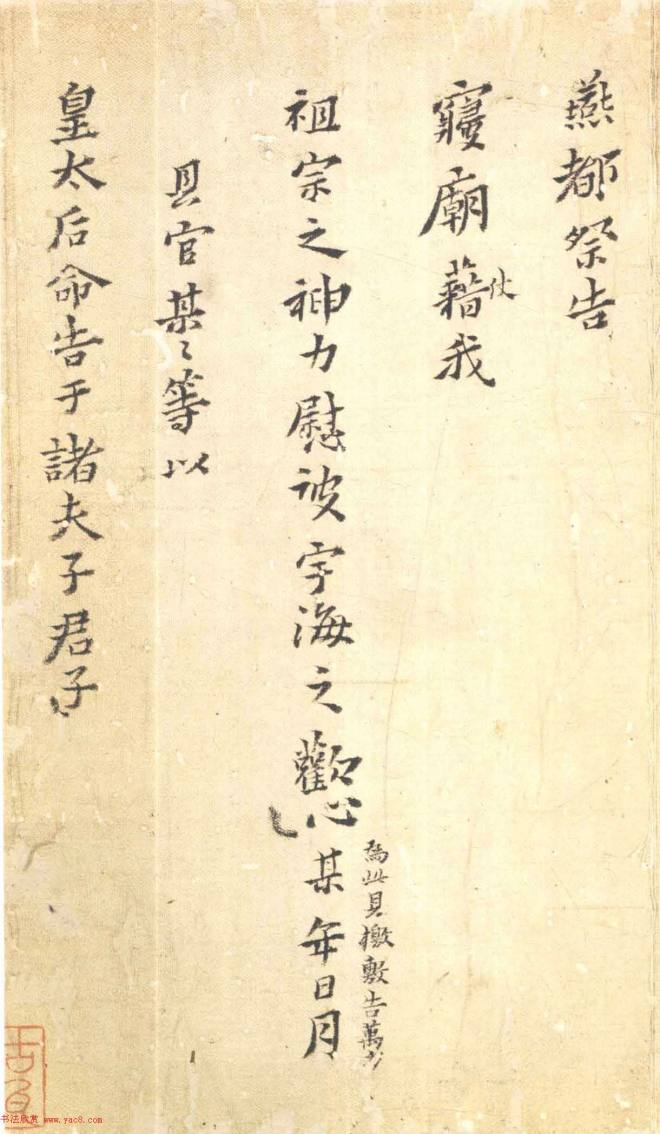 燕都祭告
寢廟藉我
仗
祖宗之神力慰被宇海之歡心某年日月
為此具檄敷告萬方
具官某〻等以
皇太后命告于諸夫子君子
书法欣赏 www.yac8.com